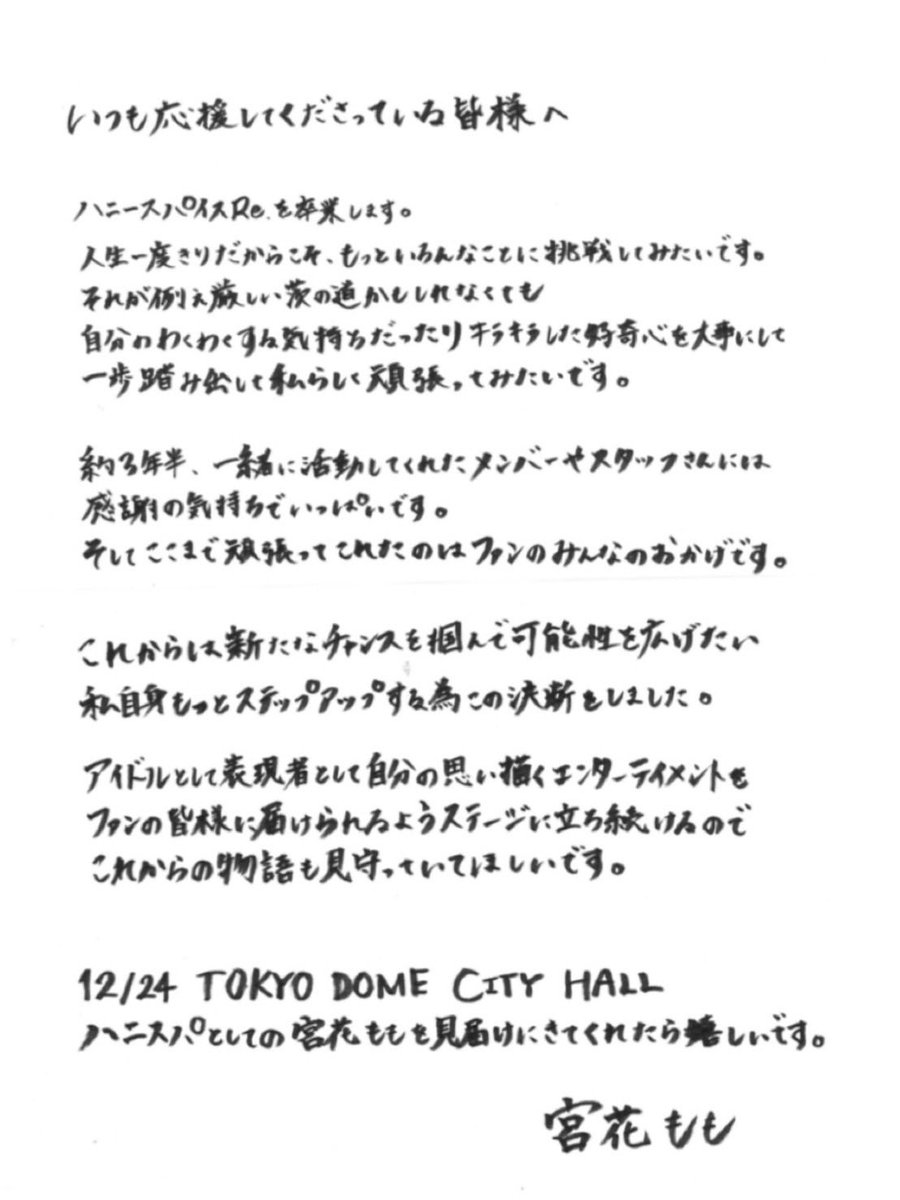 いつも応援してくださっている皆様へ
ハニースパイスRe.を卒業します。
人生一度きりだからこそ、もっといろんなことに挑戦してみたいです。
それが例え厳しい茨の道かもしれなくても
自分のわくわくする気持ちだったりキラキラした好奇心を大事にして
一歩踏み出して私らしく頑張ってみたいです。
約3年半、一緒に活動してくれたメンバーやスタッフさんには
感謝の気持ちでいっぱいです。
そしてここまで頑張ってこれたのはファンのみんなのおかげです。
これからは新たなチャンスを掴んで可能性を広げたい
私自身もっとステップアップする為この決断をしました。
アイドルとして表現者として自分の思い描くエンターテイメントを
ファンの皆様に届けられるようステージに立ち続けるので
これからの物語も見守っていてほしいです。
12/24 TOKYO DOME CITY HALL
ハニスパとしての宮花ももを見届けにきてくれたら嬉しいです。
宮花もも